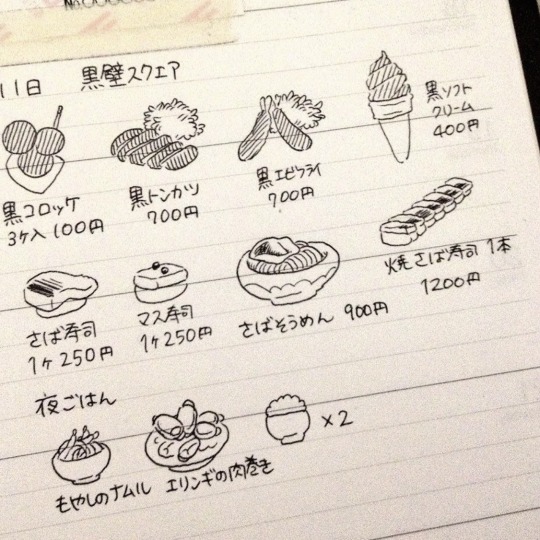 11日 黒壁スクエア
黒コロッケ
3ヶ入 100円
黒トンカツ
700円
黒エビフライ
700円
黒ソフト
クリーム
400円
さば寿司
1ヶ250円
マス寿司
1ヶ250円
さばそうめん 900円
焼さば寿司 1本
1200円
夜ごはん
もやしのナムル
エリンギの肉巻き
×2